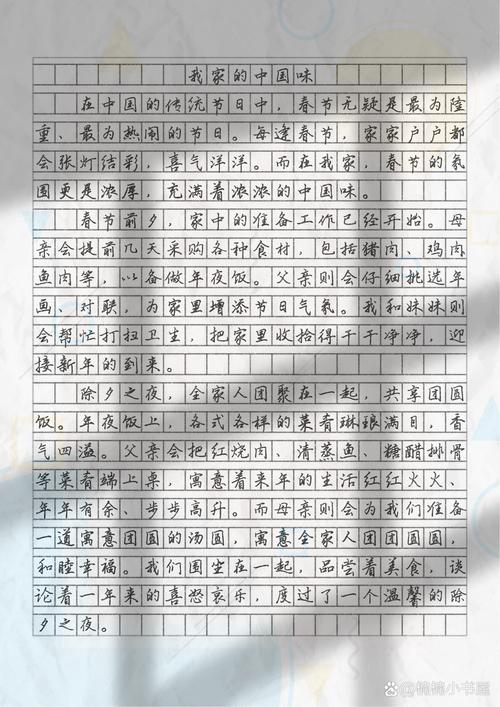 我家的中国味
在中国的传统节日中，春节无疑是最为隆
重、最为热闹的节日。每逢春节，家家户户都
会张灯结彩，喜气洋洋。而在我家，春节的氛
围更是浓厚，充满着浓浓的中国味。
春节前夕，家中的准备工作已经开始。母
亲会提前几天采购各种食材，包括猪肉、鸡肉
鱼肉等，以备做年夜饭。父亲则会仔细挑选年
画、对联，为家里增添节日气氛。我和妹妹则
会帮忙打扫卫生，把家里收拾得干干净净，迎
接新年的到来。
除夕之夜，全家人团聚在一起，共享团圆
饭。年夜饭上，各式各样的菜肴琳琅满目，香
气四溢。父亲会把红烧肉、清蒸鱼、糖醋排骨
等菜肴端上桌，寓意着来年的生活红红火火、
年年有余、步步高升。而母亲则会为我们准备
一道寓意团圆的汤圆，寓意全家人团团圆圆，
和睦幸福。我们围坐在一起，品尝着美食，谈
论着一年来的喜怒哀乐，度过了一个温馨的除
夕之夜。
Bai百度 @楠楠小书屋